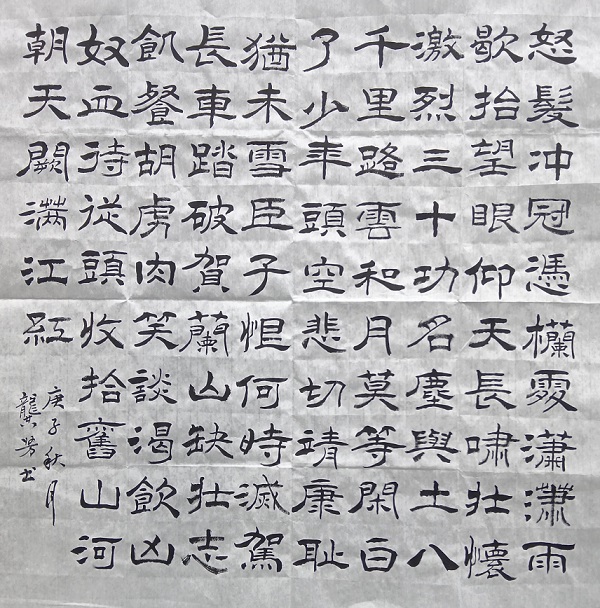 怒髮冲冠憑欄處瀟瀟雨
歇抬望眼仰天長嘯壮懷
激烈三十功名塵與土八
千里路雲和月莫等閑白
了少年頭空悲切靖康耻
猶未雪臣子恨何時滅駕
長車踏破賀蘭山缺壮志
飢餐胡虜肉笑談渴飲凶
奴血待從頭收拾舊山河
朝天闕满江紅
庚子秋月
龔芳书